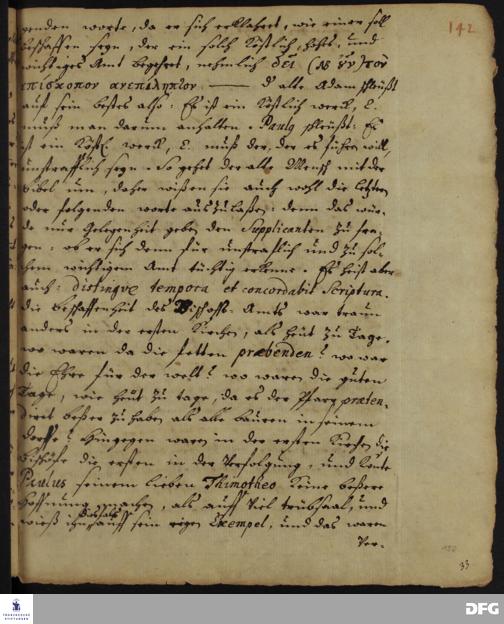 142
genden worte, da er sich erklähret, wie einer soll
beschaffen seyn, der ein solch köstlich, hohes, und
wichtiges Amt begehret, nehmlich δεῖ τὸν
ἐπίσκοπον ἀνεπίληπτον — d' alte Adam schleüßt
auß sein bestes also: Es ist ein köstlich werck, E.
muß man darum anhalten. Paulus schleüßt: Es
ist ein köstl. werck, E. muß der, der es führen will,
unsträfflich seyn. So gehet der alte Mensch mit der
Bibel um, daher wißen sie auch wohl die letztern
oder folgenden worte auszulaßen: denn das wür-
de nur Gelegenheit geben den Supplicanten zu fra-
gen: ob er sich denn für unsträflich und zu sol-
chem wichtigem Amt tüchtig erkenne. Es heist aber
auch: distingve tempora et concordabit Scriptura.
die beschaffenheit des Bischoffs-Amts war traun
anders in der ersten Kirchen, als heüt zu Tage.
wo waren da die fetten præbenden? wo war
die Ehre für der welt? wo waren die guten
Tage, wie heüt zu tage, da es der Pfarr præten-
diret beßer zu haben als alle bauren in seinem
dorffe? Hingegen waren in der ersten Kirchen die
Bischöfe die ersten in der Verfolgung, und konte
Paulus seinem lieben Thimotheo keine beßere
Hoffnung machen, als auff viel trübsaal, und
wieß ihn deshalb auff sein eigen Exempel, und das waren
Ver-
33
DFG